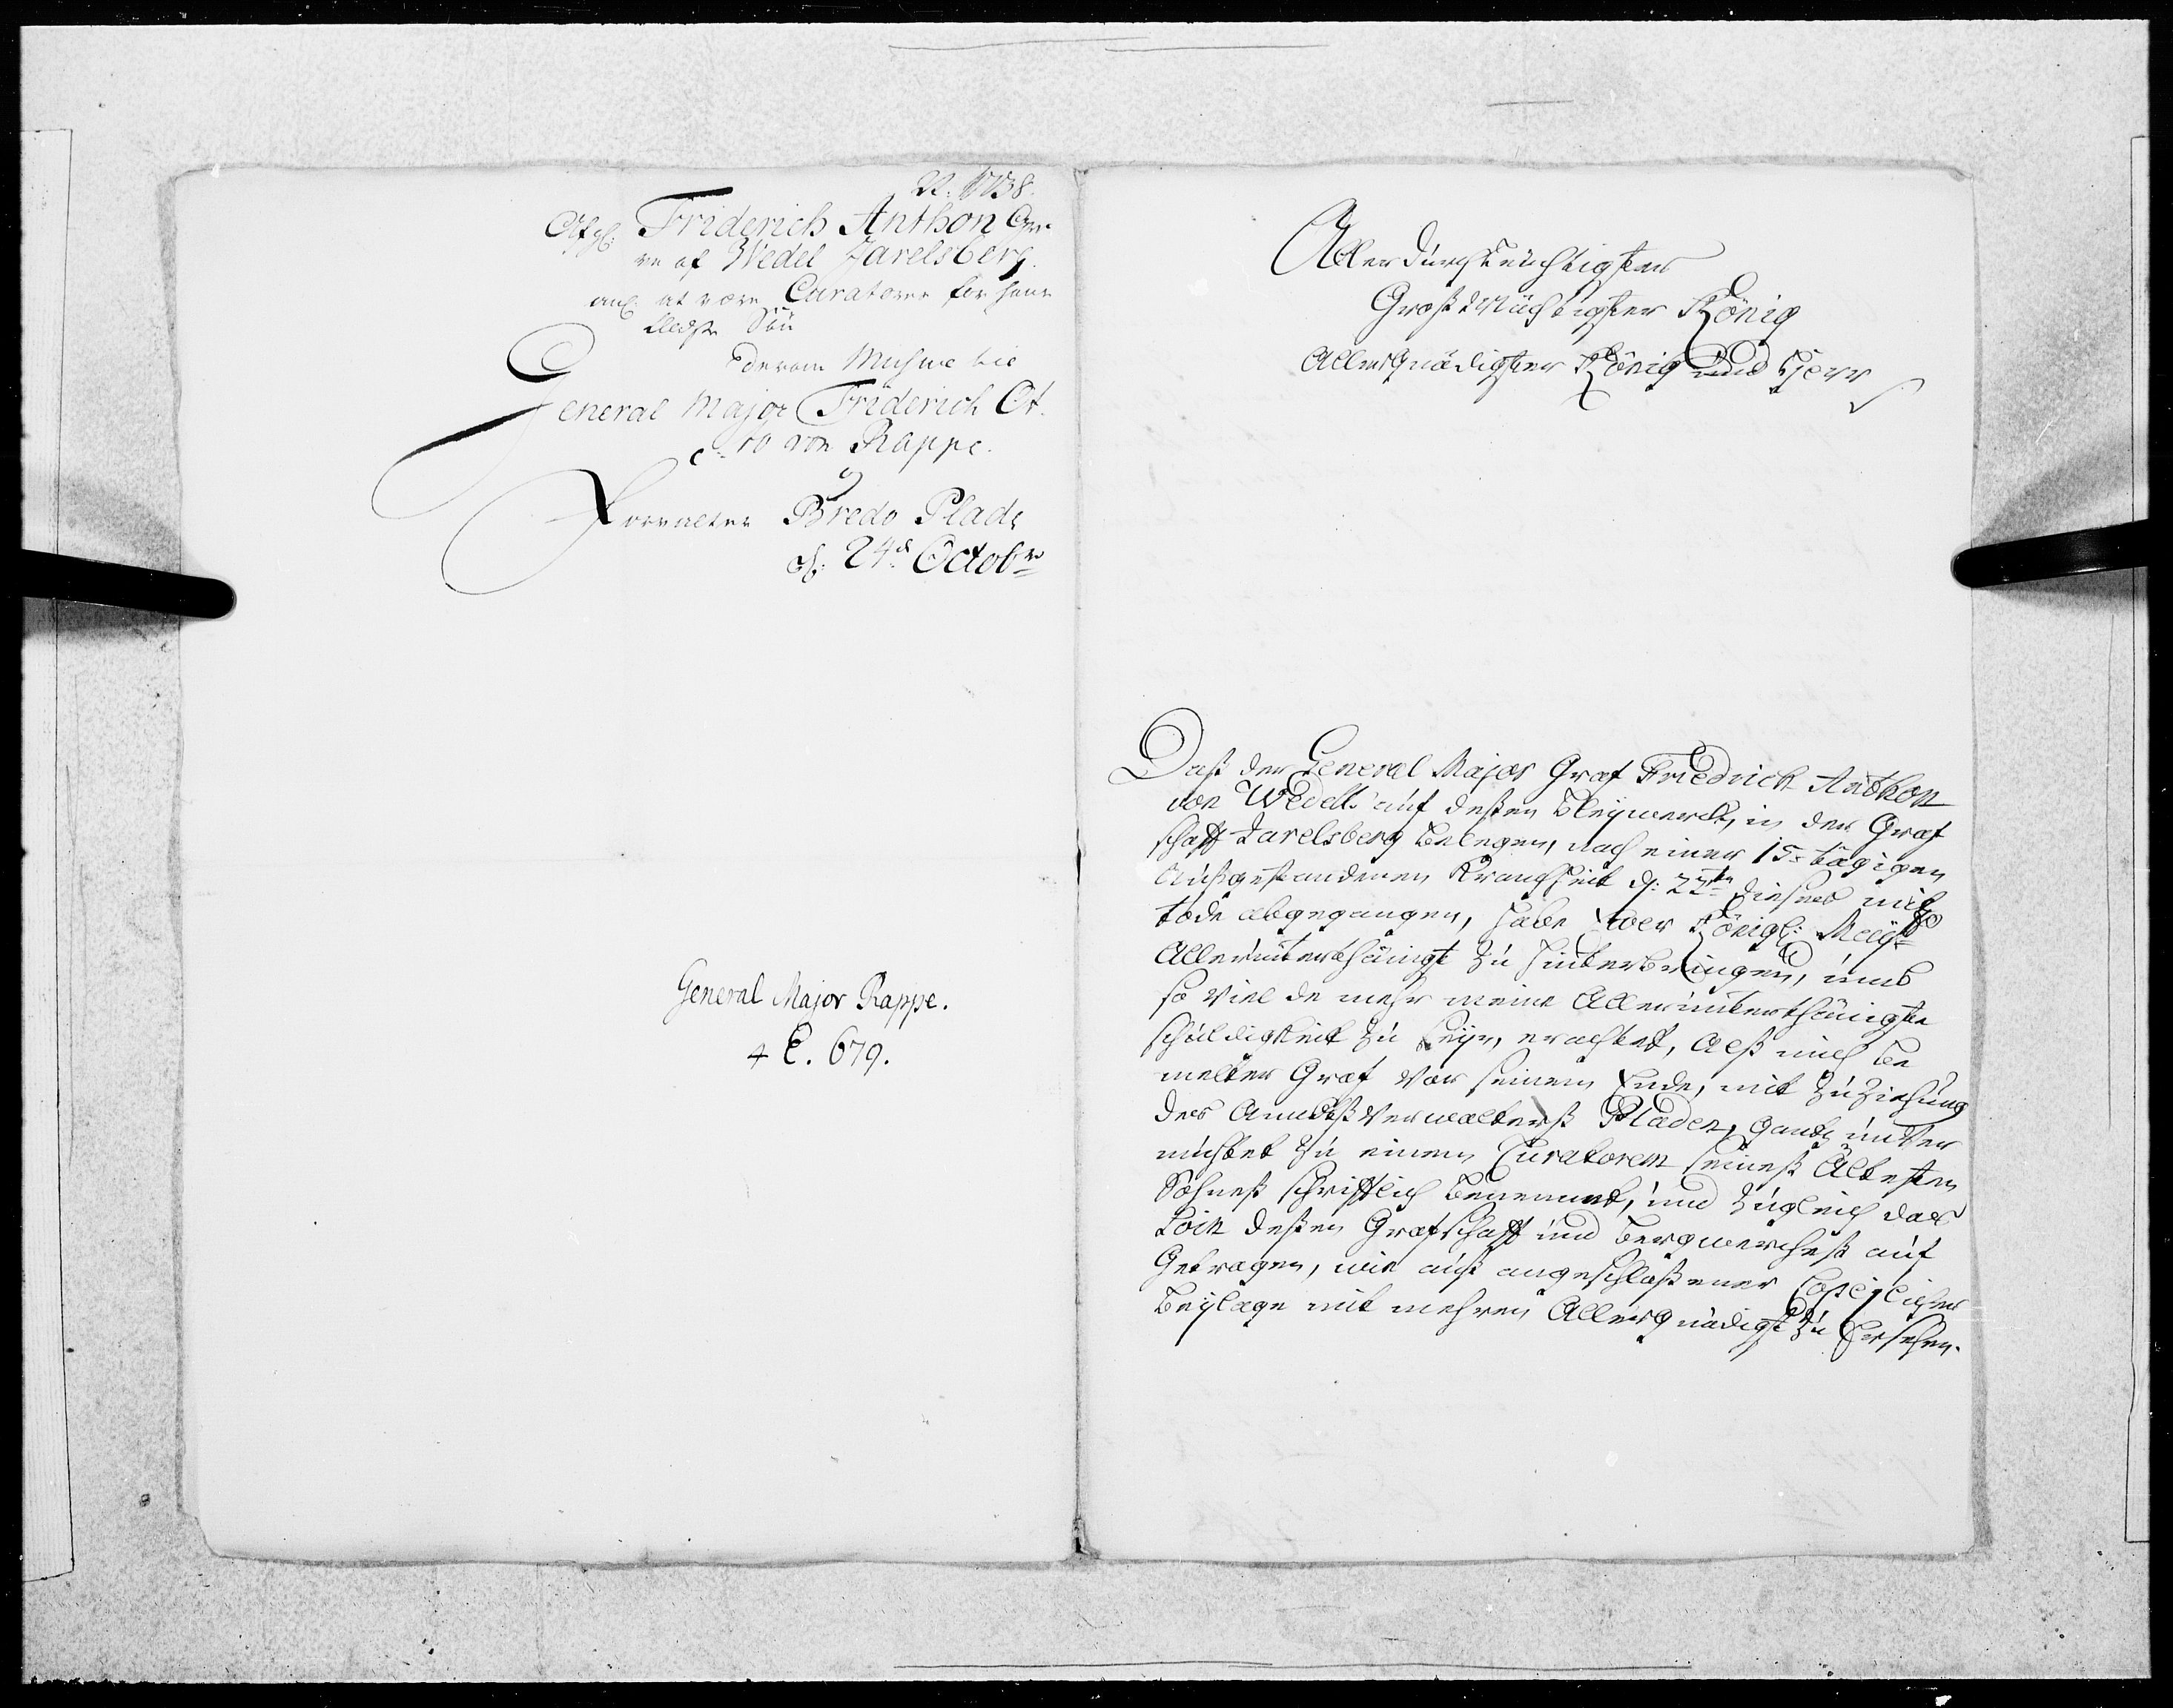 1738.
Afg: Friderich Anthon Gre-
ve af Wedel Jarelsberg.
ang: at være Curatorer for hans
Eldste Søn
General Major Friderich Ot-
to von Rappe.
og
Forvalter Bredo Plade
d: 24de Octobr
General Major Rappe.
E. 679.
Allerdurchleüchtigster
Großmächtigster König
Allergnädigster König und Herr
Daß der General Major Graf Friedrich Anthon
von Wedell auf deßen Bleÿwerck, in der Graf
schafft Jarelsberg belegen, nach einer 15 tägigen
Außgestandenen Kranckheit d: 22ten dieses mit
tode abgegangen, habe Ewer Königl: Maÿtt
Allerunterthänigst zu hinterbringen, umb
so viel de mehr meine Allerunterthänigste
schuldigkeit zu seÿn, erachtet, Alß mich be
melter Graf vor seinem Ende, mit zuziehung
des Ambtß Verwalterß Pladen, gantz unver
muhtet zu einem Curatorem seineß Eltesten
Sohneß schrifftlich benennet, und zugleich das
Soin deßen Grafschafft und bergwercheß auf
Getragen, wie auß angeschloßener Copeÿlicher
Beÿlage mit mehren Allergnädigst zu Ersehen.